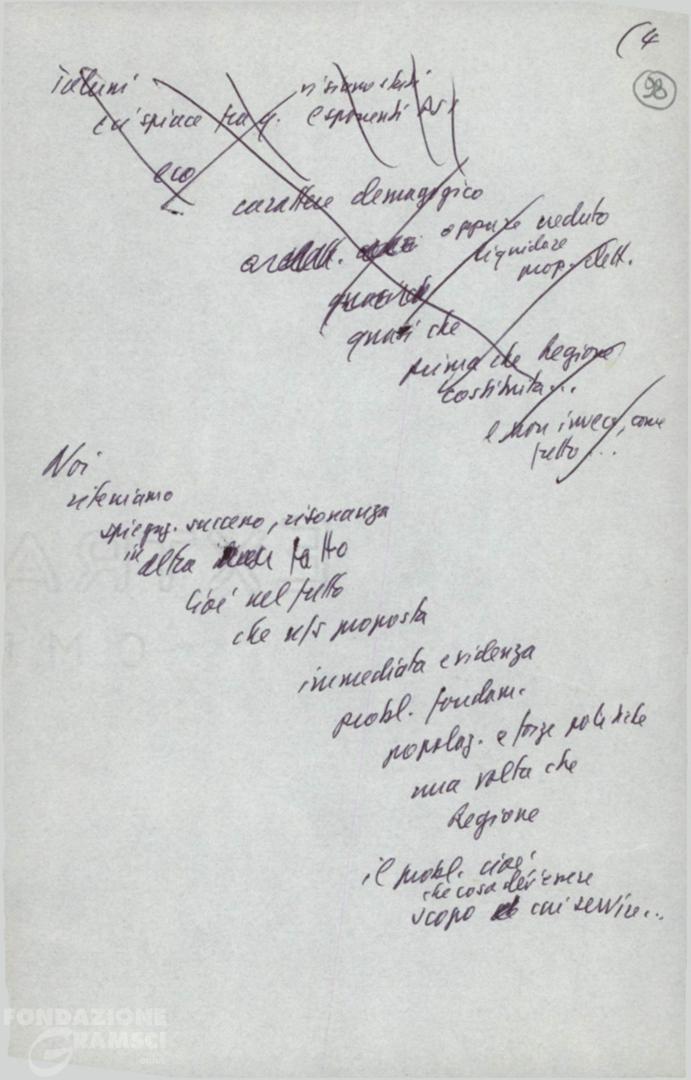 (4
98
taluni
ci spiace tra q. esponenti
eco
carattere demagogico
oppure creduto
liquidare
prop. elett.
quasi che
quasi che
prima che Regione
costituita...
e non invece, come
fatto...
Noi
riteniamo
spiegaz. successo, risonanza
in altro fatto
cioè nel fatto
che ns proposta
immediata evidenza
probl. fondam.
popolaz. e forze politiche
una volta che
Regione
il probl. cioè
che cosa dev'essere
scopo cui servire...
FONDAZIONE
GRAMSCI